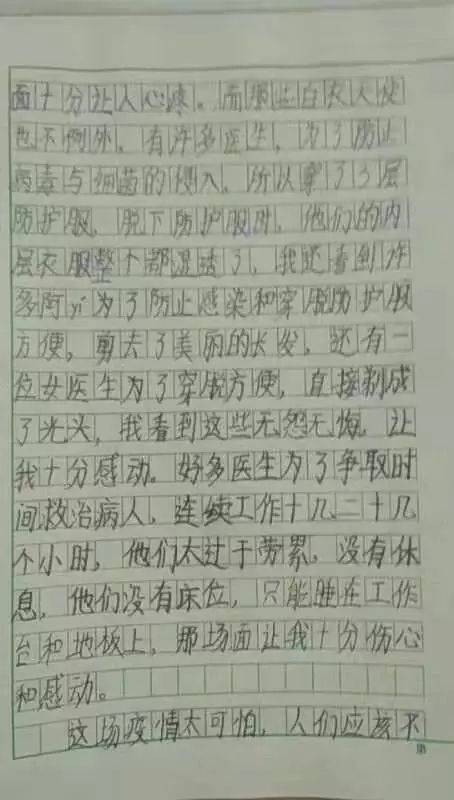 面十分让人心疼。而那些白衣天使
也不例外，有许多医生，为了防止
病毒与细菌的侵入，所以穿了3层
防护服，脱下防护服时，他们的内
层衣服整个都湿透了，我还看到许
多阿yí为了防止感染和穿脱防护服
方便，剪去了美丽的长发，还有一
位女医生为了穿脱方便，直接剃成
了光头，我看到这些无怨无悔，让
我十分感动。好多医生为了争取时
间救治病人，连续工作十几、二十几
个小时，他们太过于劳累，没有休
息，他们没有床位，只能睡在工作
台和地板上，那场面让我十分伤心
和感动。
这场疫情太可怕，人们应该不
第